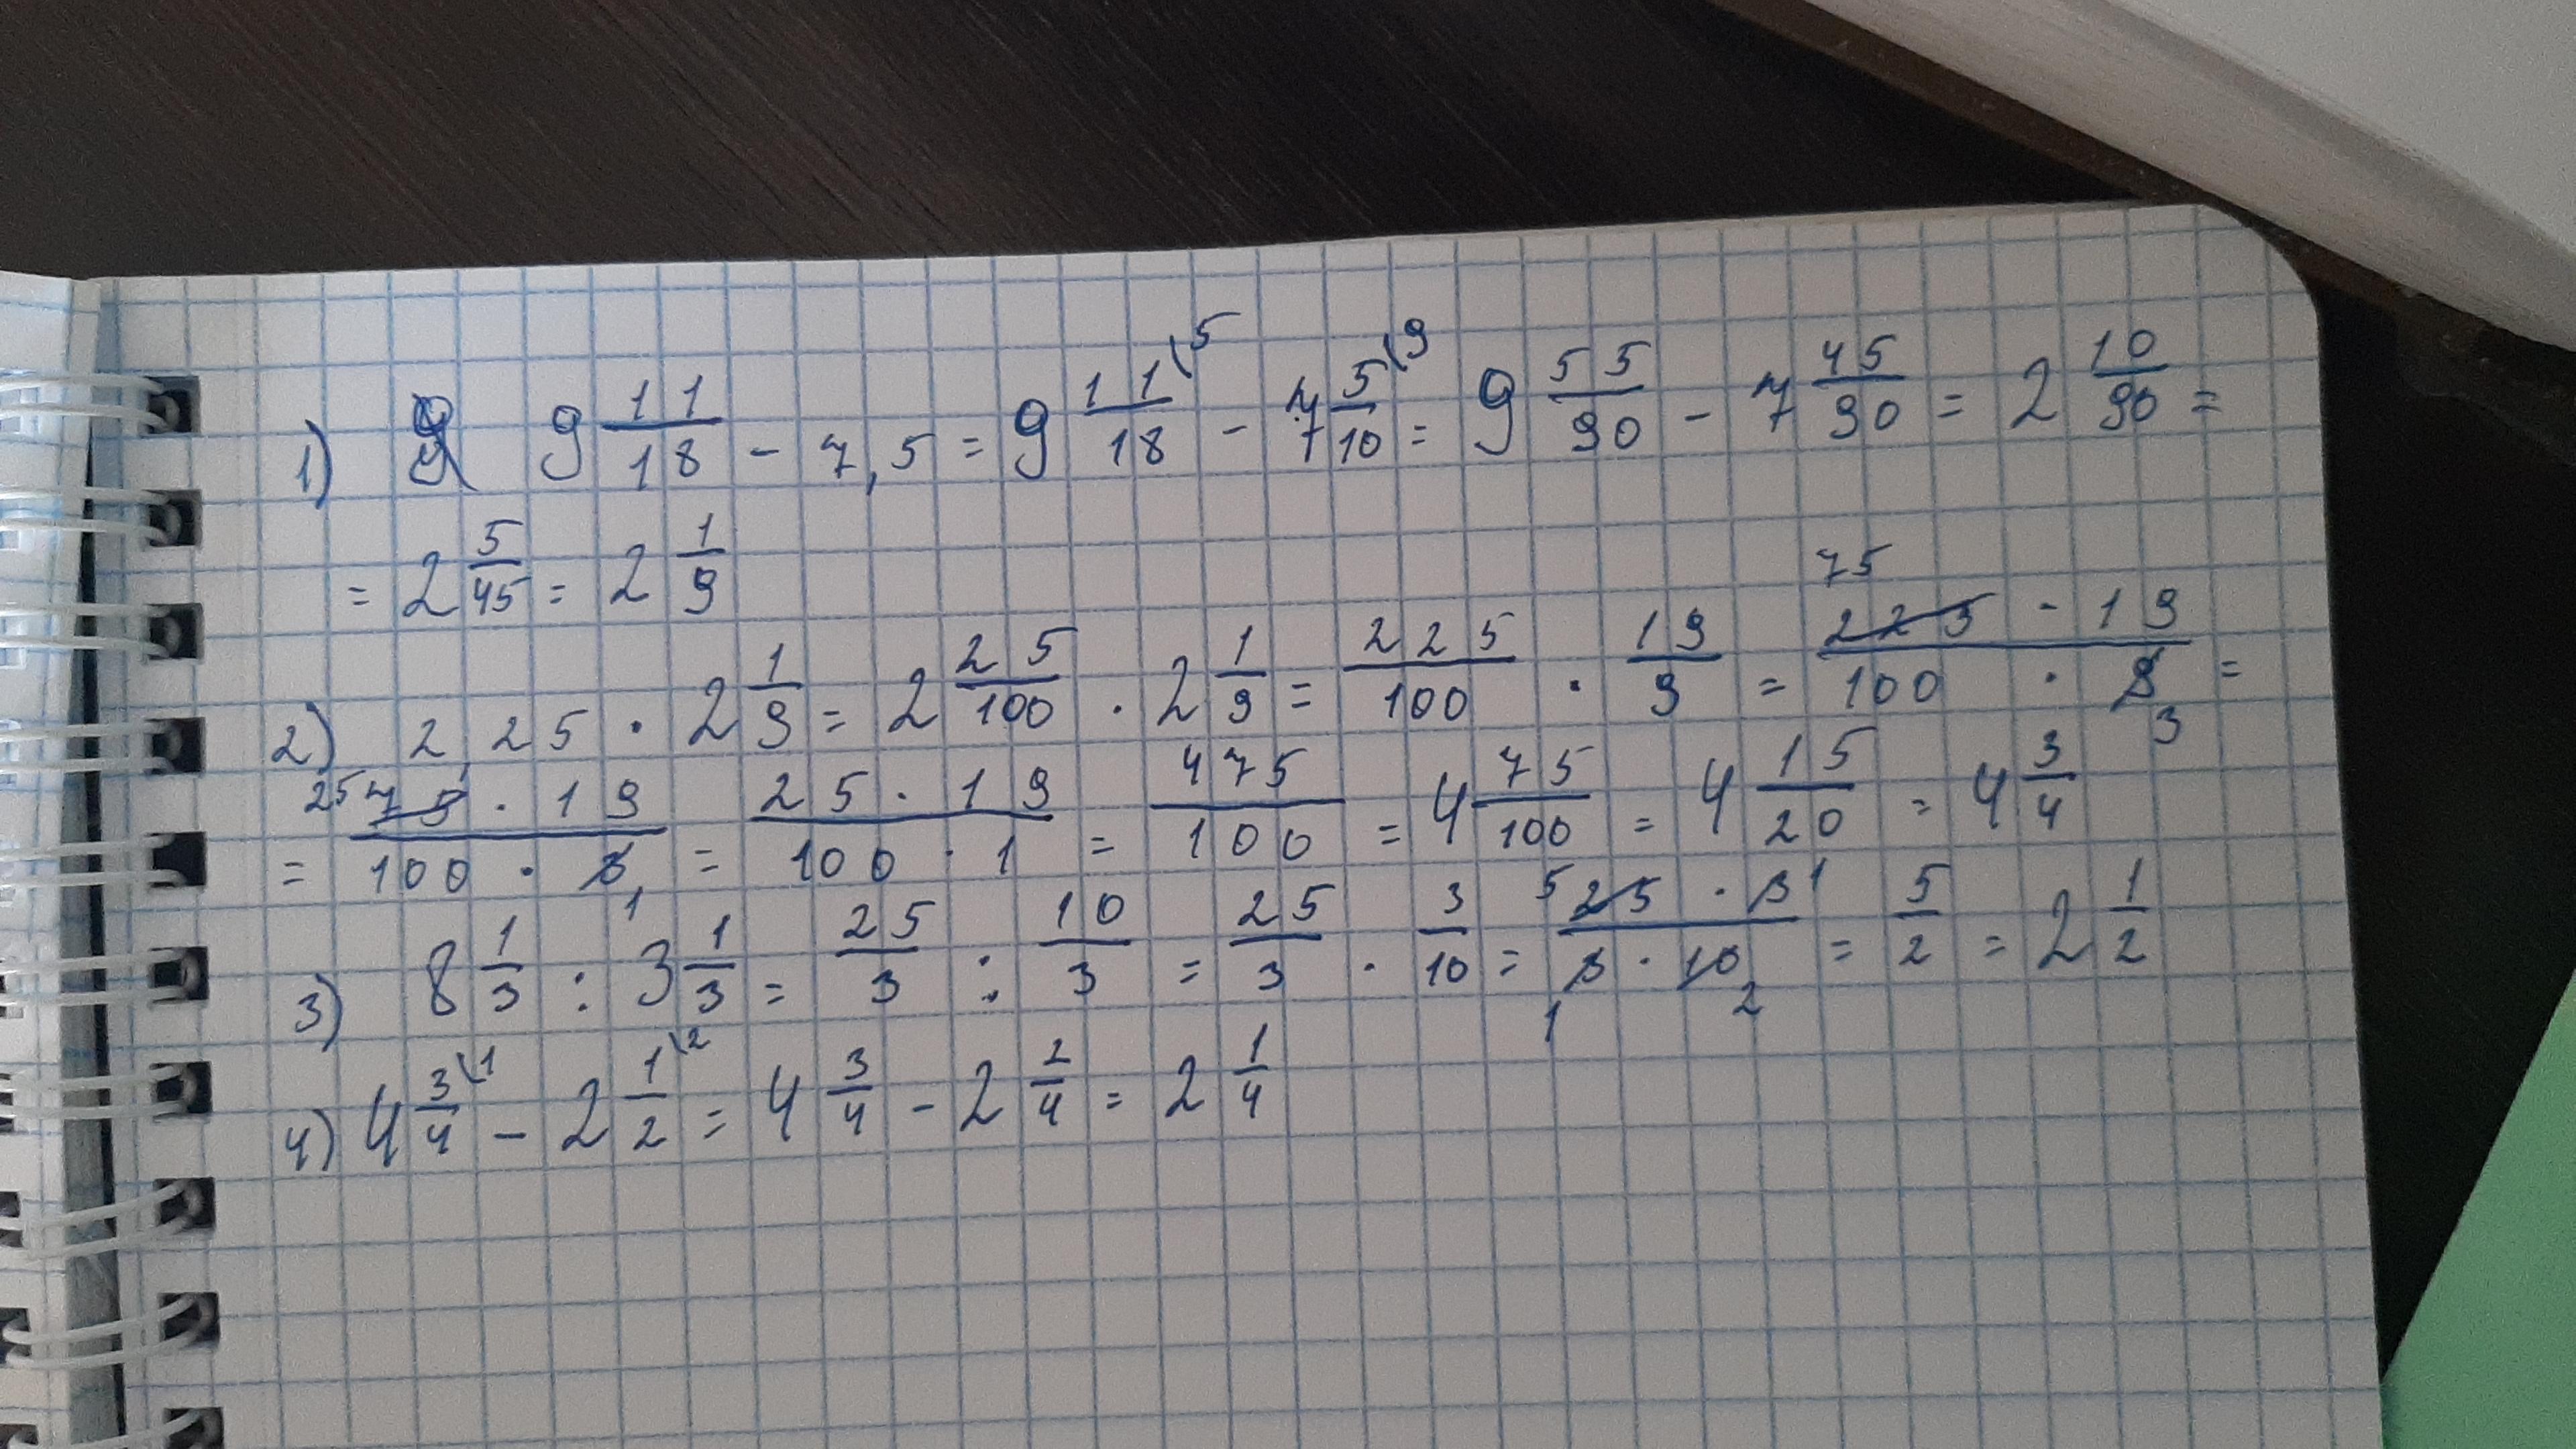 1) 9 11/18 - 7,5 = 9 11/18 \5 - 7 5/10 \9 = 9 55/90 - 7 45/90 = 2 10/90 =
= 2 5/45 = 2 1/9
2) 2,25 · 2 1/9 = 2 25/100 · 2 1/9 = 225/100 · 19/9 = 75 225 · 19 / 100 · 9 3 =
= 25 75 · 19 / 100 · 3 1 = 25 · 19 / 100 · 1 = 475/100 = 4 75/100 = 4 15/20 = 4 3/4
3) 8 1/3 : 3 1/3 = 25/3 : 10/3 = 25/3 · 3/10 = 5 25 · 3 1 / 1 3 · 10 2 = 5/2 = 2 1/2
4) 4 3/4 \1 - 2 1/2 \2 = 4 3/4 - 2 2/4 = 2 1/4